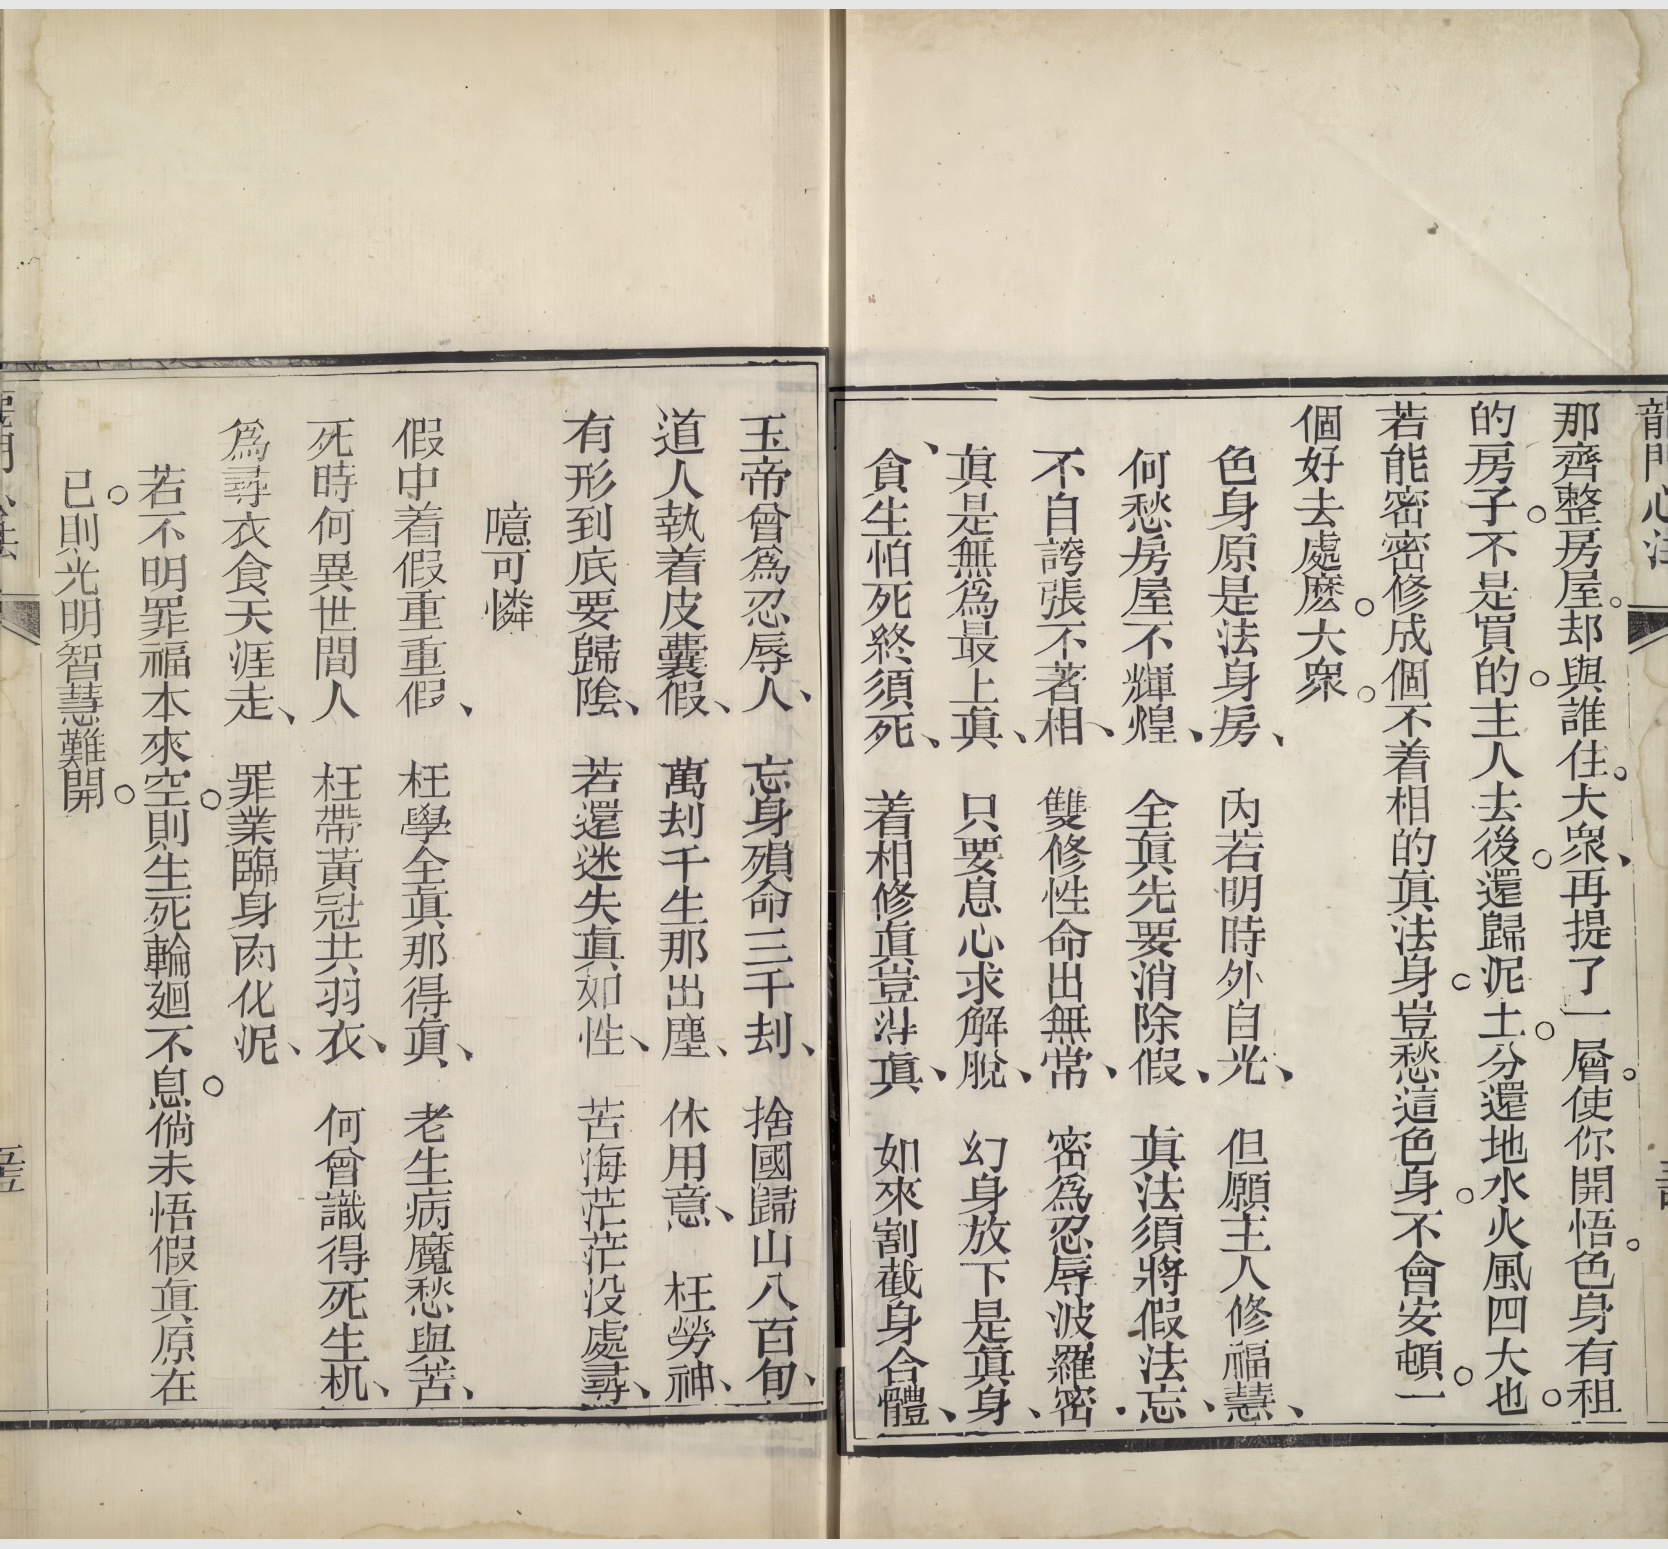 龍門心法
那齊整房屋。却與誰住。大衆、再提了一層。使你開悟。色身有租
的房子。不是買的。主人去後。還歸泥土。分還地水火風四大也。
若能密密修成個不着相的眞法身。豈愁這色身。不會安頓。一
個好去處麽。大衆。
色身原是法身房、 內若明時外自光、 但願主人修福慧、
何愁房屋不輝煌、 全眞先要消除假、 眞法須將假法忘、
不自誇張不著相、 雙修性命出無常、 密爲忍辱波羅密、
眞是無爲最上眞、 只要息心求解脫、 幻身放下是眞身、
貪生怕死終須死、 着相修眞豈淂眞、 如來割截身合體、
玉帝曾爲忍辱人、 忘身殞命三千刦、 捨國歸山八百旬、
道人執着皮囊假、 萬刦千生那出塵、 休用意、 枉勞神、
有形到底要歸陰、 若還迷失眞如性、 苦海茫茫没處尋、
噫可憐
假中着假重重假、 枉學全眞那得眞、 老生病魔愁與苦、
死時何異世間人 枉帶黃冠共羽衣、 何曾識得死生机、
爲尋衣食天涯走、 罪業臨身肉化泥、
若不明罪福本來空。則生死輪廻不息。倘未悟假眞原在
己。則光明智慧難開。